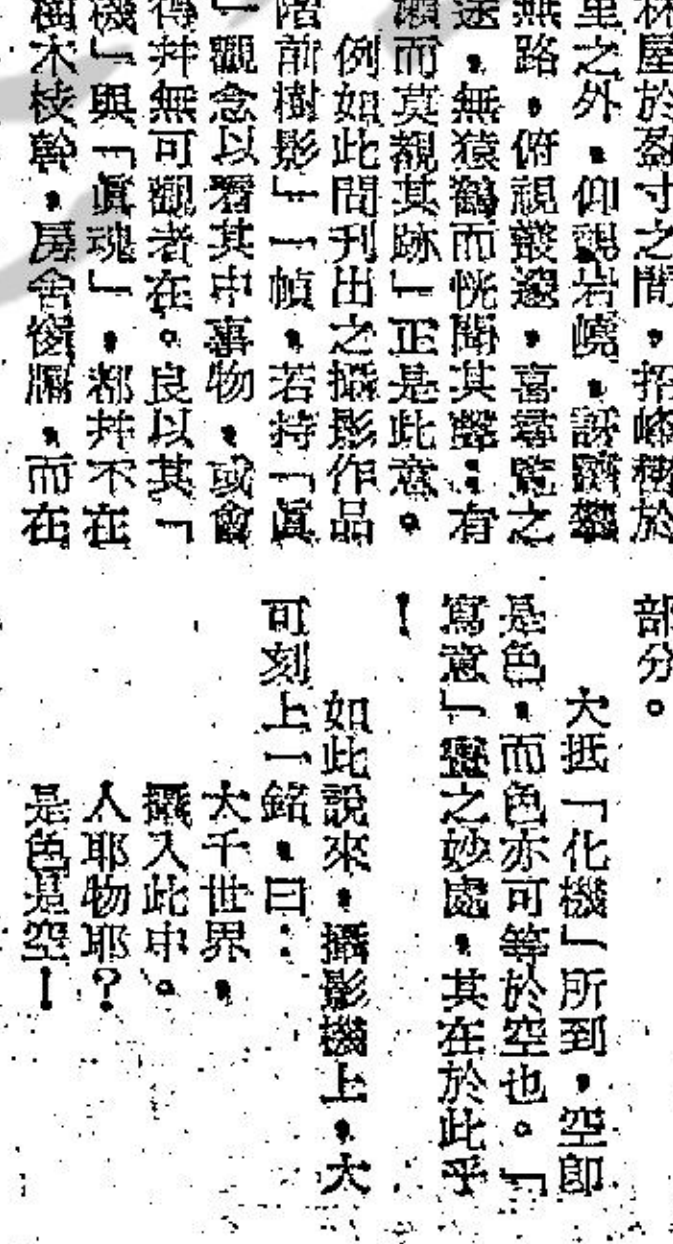 林屋於盈寸之間，招峰巒於
里之外，仰觀岩嶢，訝躋攀
無路，俯視叢邃，喜尋覽之
途，無猿鶴而恍聞其聲：有
瀨而莫覩其跡」正是此意。
例如此間刊出之攝影作品
階前樹影」一幀，若持「眞
」觀念以看其中事物，或會
得幷無可觀者在。良以其「
機」與「眞魂」，都幷不在
樹木枝幹，房舍窗牖，而在
部分。
大抵「化機」所到，空即
是色，而色亦可等於空也。「
寫意」靈之妙處，其在於此乎
！
如此說來，攝影機上，大
可刻上一銘，曰：
大千世界，
攝入此中。
人耶物耶？
是色是空！